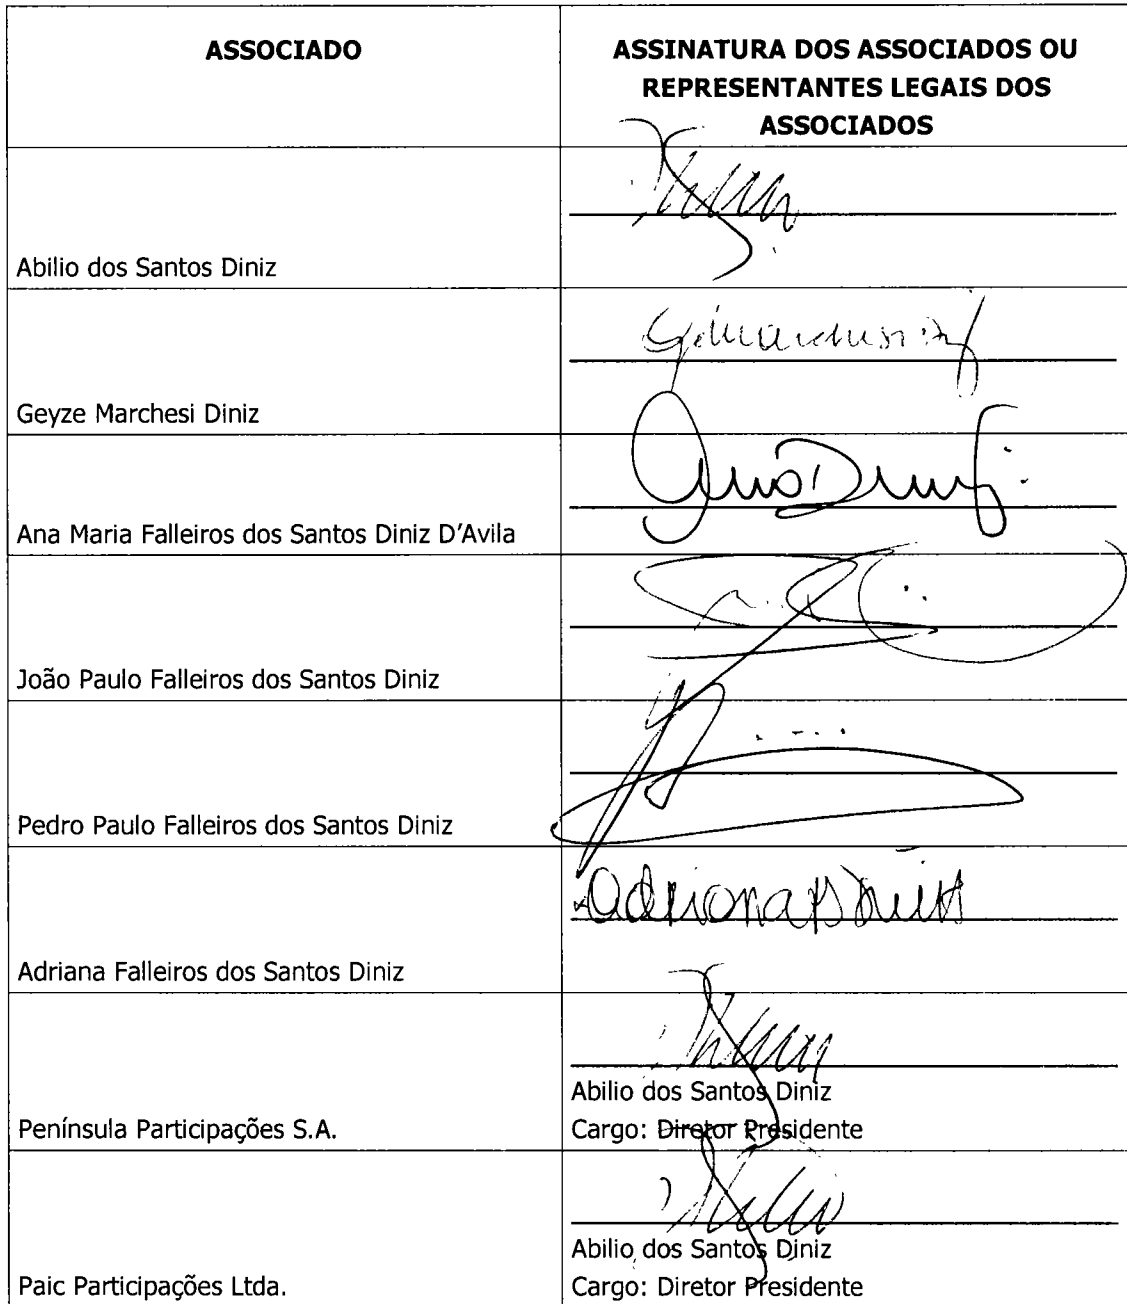 ASSOCIADO
ASSINATURA DOS ASSOCIADOS OU
REPRESENTANTES LEGAIS DOS
ASSOCIADOS
Abilio dos Santos Diniz
Geyze Marchesi Diniz
Ana Maria Falleiros dos Santos Diniz D'Avila
João Paulo Falleiros dos Santos Diniz
Pedro Paulo Falleiros dos Santos Diniz
Adriana Falleiros dos Santos Diniz
Península Participações S.A.
Abilio dos Santos Diniz
Cargo: Diretor Presidente
Paic Participações Ltda.
Abilio dos Santos Diniz
Cargo: Diretor Presidente